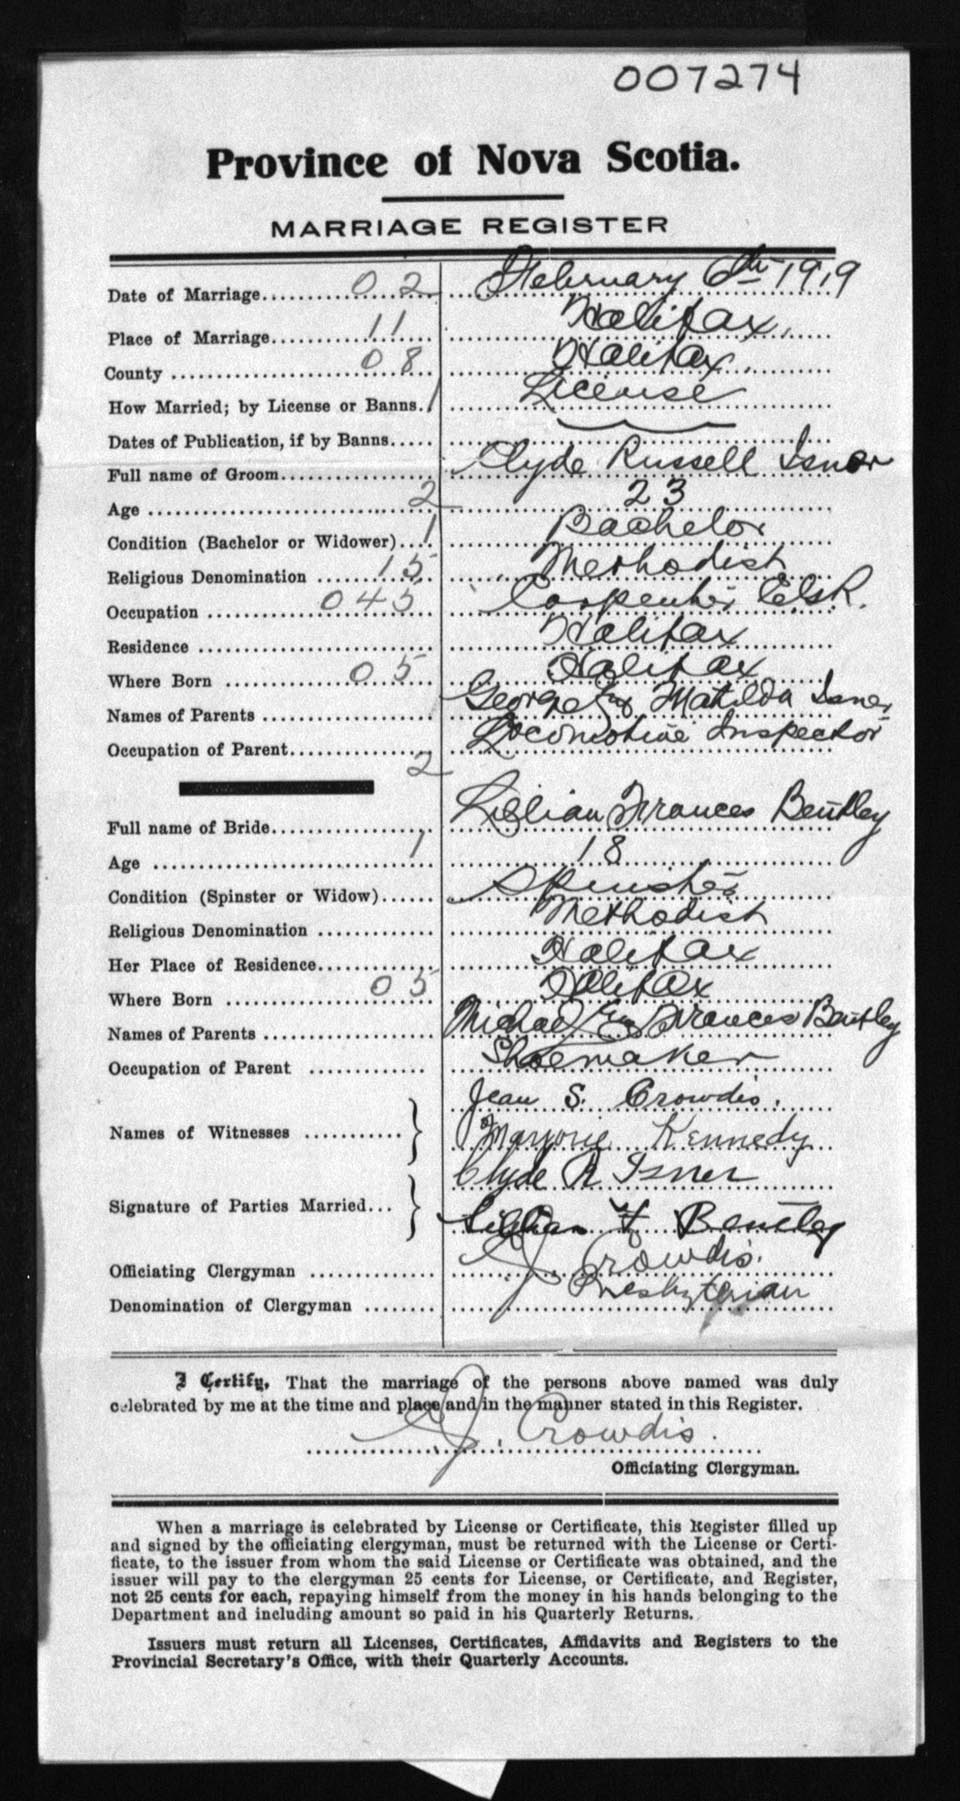 007274
Province of Nova Scotia.
MARRIAGE REGISTER
Date of Marriage 02 February 6th 1919
Place of Marriage 11 Halifax.
County 08 Halifax.
How Married; by License or Banns 1 License
Dates of Publication, if by Banns
Full name of Groom Clyde Russell Isnor
Age 2 23
Condition (Bachelor or Widower) 1 Bachelor
Religious Denomination 15 Methodist
Occupation 045 Carpenter
Residence Halifax
Where Born 05 Halifax
Names of Parents George Matilda Isner
Occupation of Parent Locomotive Inspector
2
Full name of Bride Lillian Frances Bentley
Age 1 18
Condition (Spinster or Widow) Spinster
Religious Denomination Methodist
Her Place of Residence Halifax
Where Born 05 Halifax
Names of Parents Michael Frances Bentley
Occupation of Parent Shoemaker
Names of Witnesses Jean S. Crowdis.
Marjorie Kennedy
Signature of Parties Married Clyde R Isner
Lillian F Bentley
Officiating Clergyman Crowdis.
Denomination of Clergyman Presbyterian
I Certify, That the marriage of the persons above named was duly
celebrated by me at the time and place and in the manner stated in this Register.
Crowdis.
Officiating Clergyman.
When a marriage is celebrated by License or Certificate, this Register filled up
and signed by the officiating clergyman, must be returned with the License or Certi-
ficate, to the issuer from whom the said License or Certificate was obtained, and the
issuer will pay to the clergyman 25 cents for License, or Certificate, and Register,
not 25 cents for each, repaying himself from the money in his hands belonging to the
Department and including amount so paid in his Quarterly Returns.
Issuers must return all Licenses, Certificates, Affidavits and Registers to the
Provincial Secretary's Office, with their Quarterly Accounts.